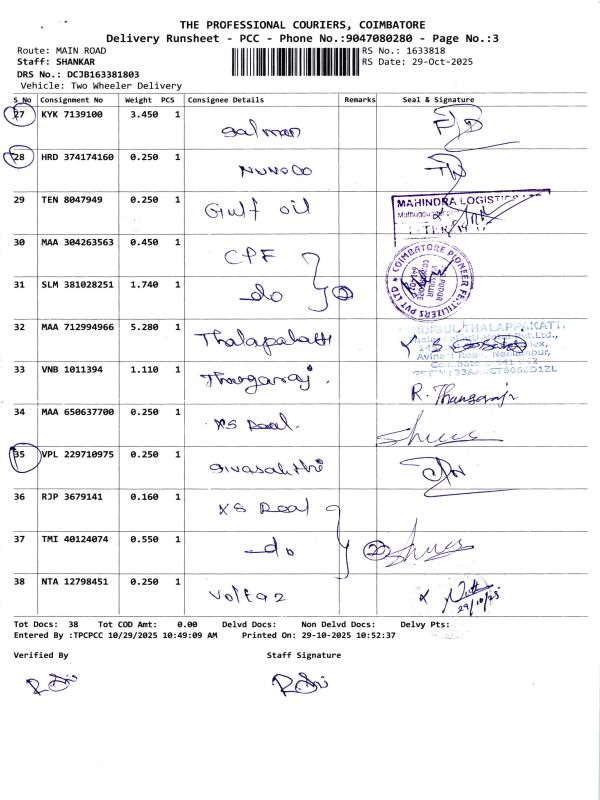 THE PROFESSIONAL COURIERS, COIMBATORE
Delivery Runsheet - PCC - Phone No.:9047080280 - Page No.:3
Route: MAIN ROAD RS No.: 1633818
Staff: SHANKAR RS Date: 29-Oct-2025
DRS No.: DCJB163381803
Vehicle: Two Wheeler Delivery
S No Consignment No Weight PCS Consignee Details Remarks Seal & Signature
27 KYK 7139100 3.450 1 Salman
28 HRD 374174160 0.250 1
29 TEN 8047949 0.250 1 Gulf oil MAHINDRA LOGISTICS
30 MAA 304263563 0.450 1 CPF
COIMBATORE PIONEER FERTILIZERS PVT LTD
31 SLM 381028251 1.740 1 do 2
32 MAA 712994966 5.280 1 Thalapakatti THALAPPAKATTI
33 VNB 1011394 1.110 1 Thangaraj R. Thangaraj
34 MAA 650637700 0.250 1 XS Real
35 VPL 229710975 0.250 1 Sivasakthi
36 RJP 3679141 0.160 1 XS Real
37 TMI 40124074 0.550 1 do 2
38 NTA 12798451 0.250 1 Voltas 29/10/25
Tot Docs: 38 Tot COD Amt: 0.00 Delvd Docs: Non Delvd Docs: Delvy Pts:
Entered By :TPCPCC 10/29/2025 10:49:09 AM Printed On: 29-10-2025 10:52:37
Verified By Staff Signature